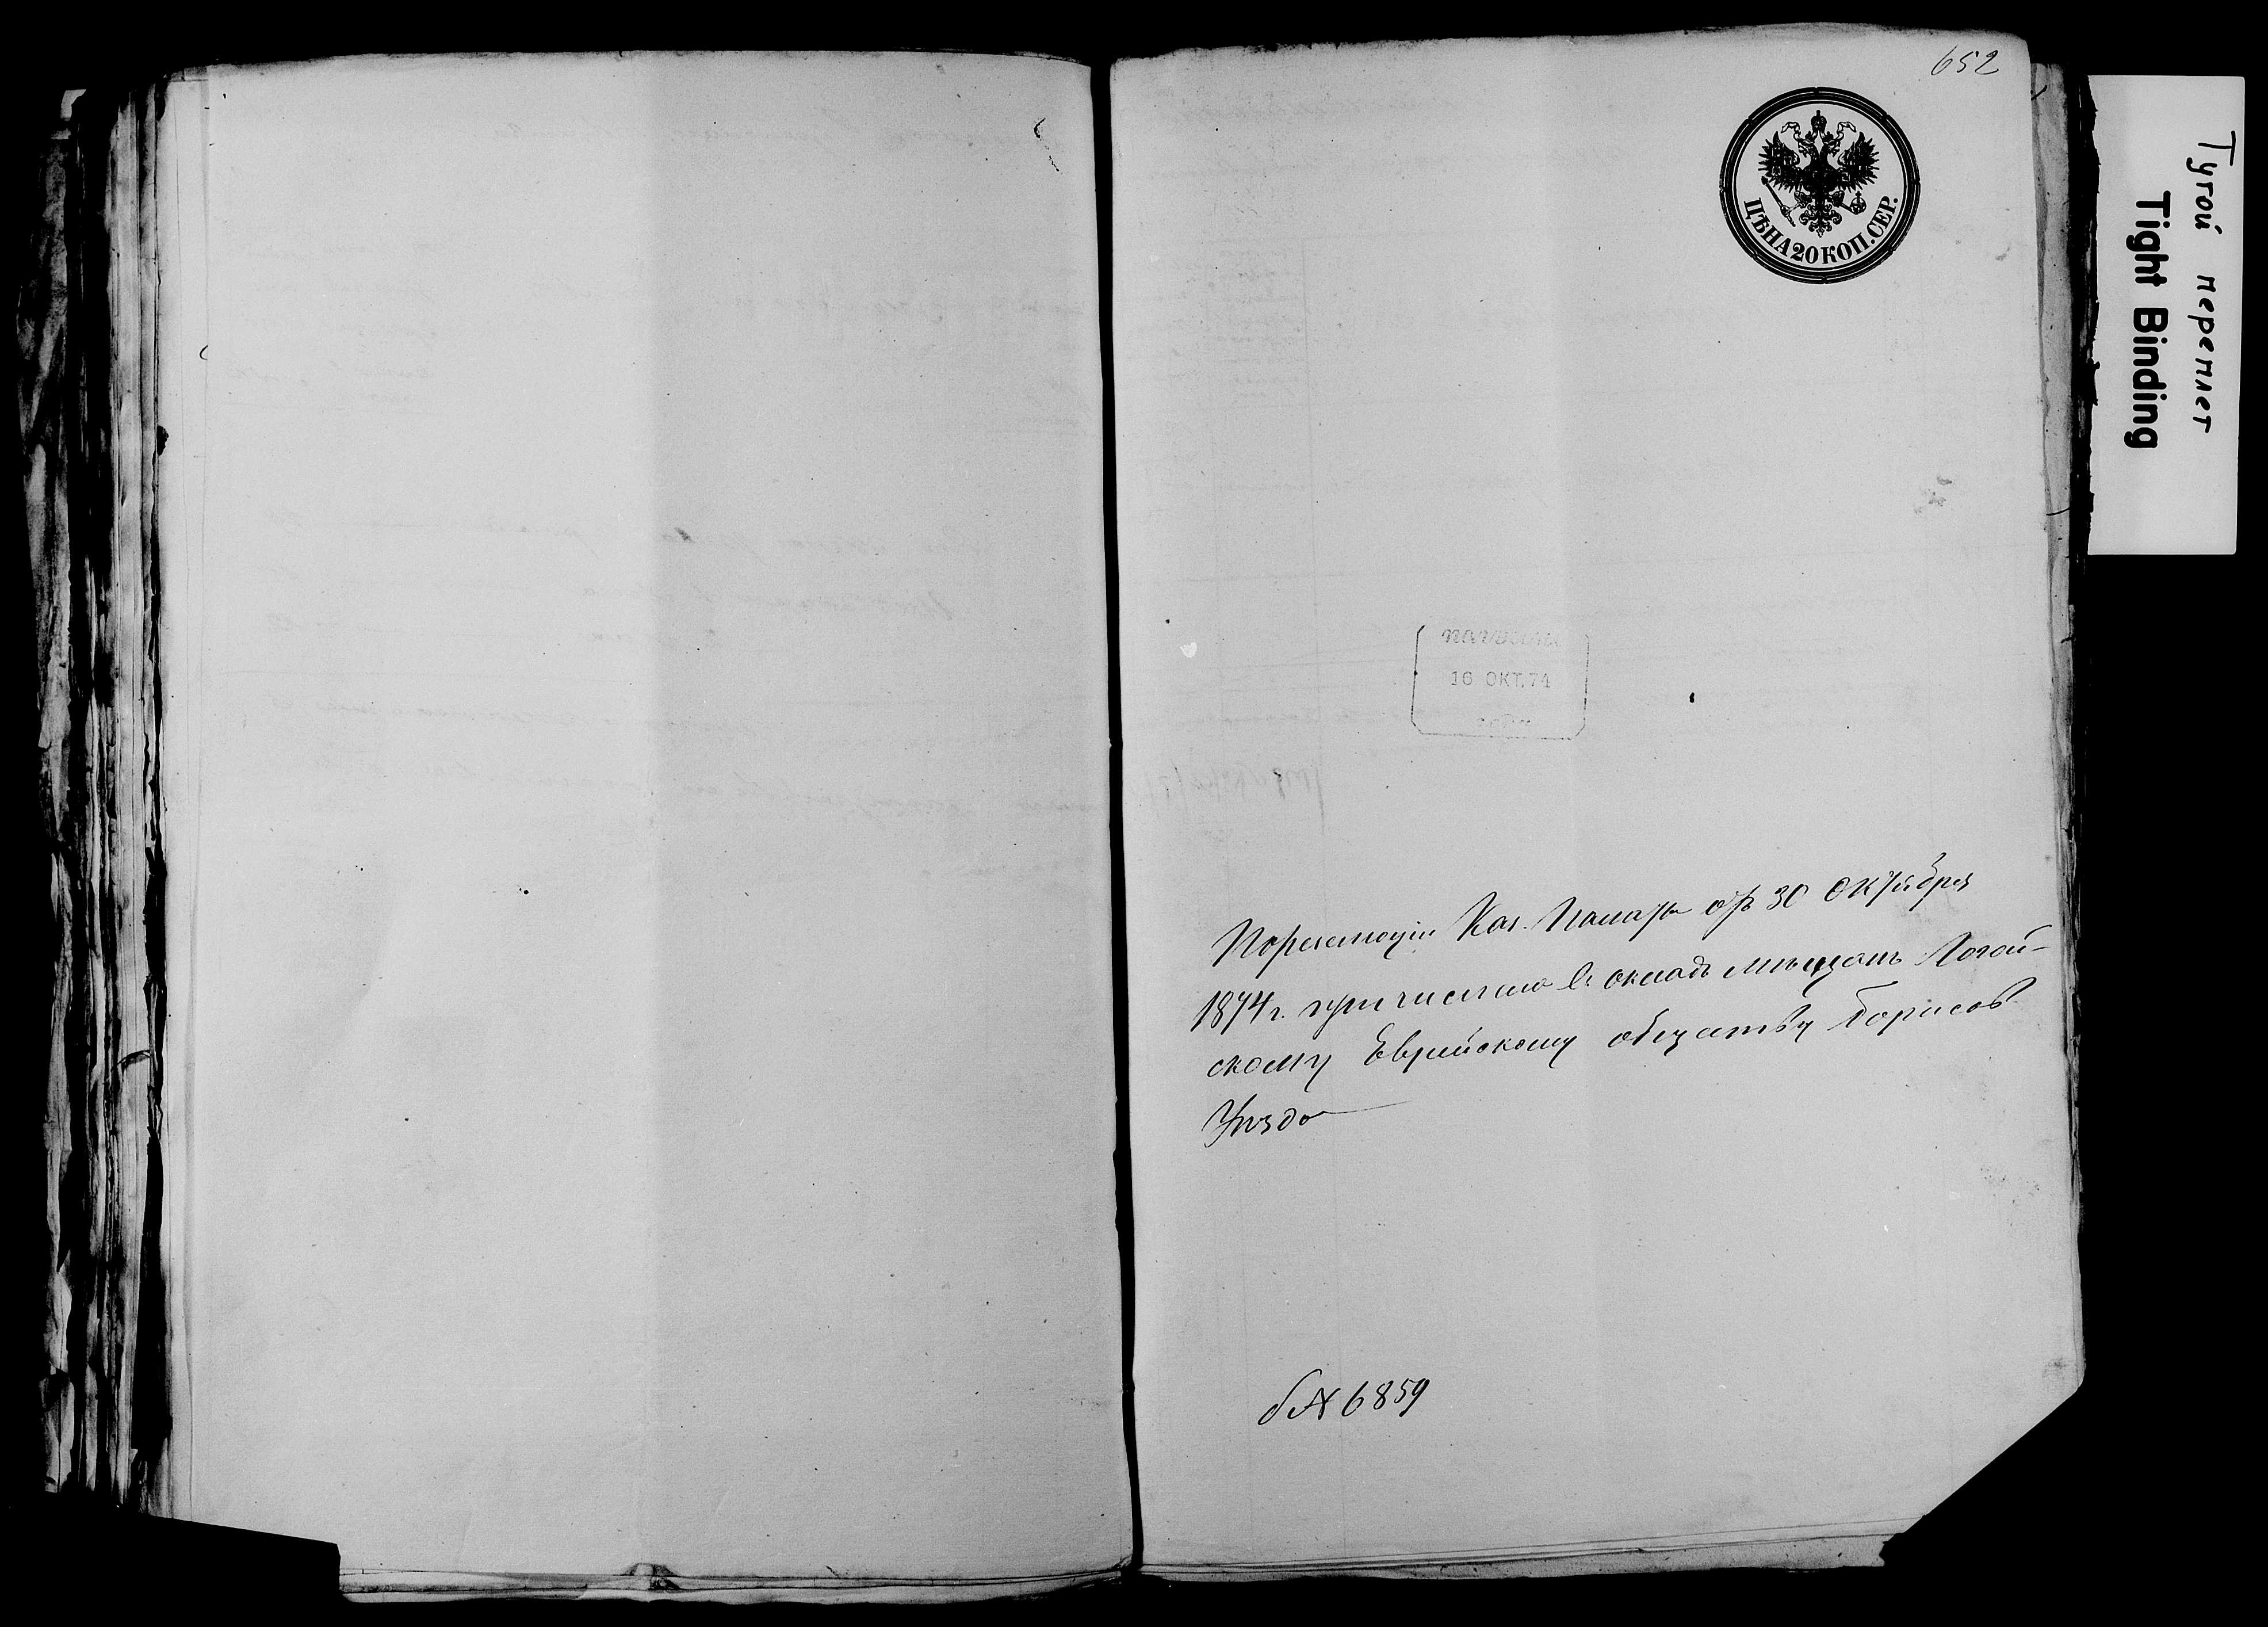 652
ЦѢНА 20 КОП. СЕР.
Тугой переплет
Tight Binding
16 ОКТ. 74
По резолюціи Каз. Палаты отъ 30 Октября
1874 г. причислено въ окладъ мѣщанъ Логой-
скому Еврейскому обществу Борисов
Уѣзда
№ 6859